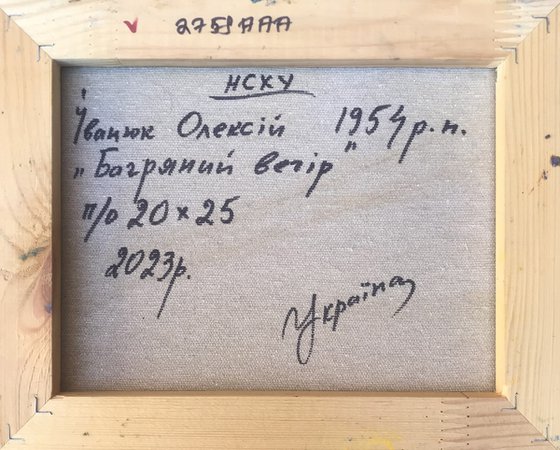 НСХУ
Іванюк Олексій 1954 р.н.
"Багряний вечір"
п/о 20 х 25
2023р.
Україна